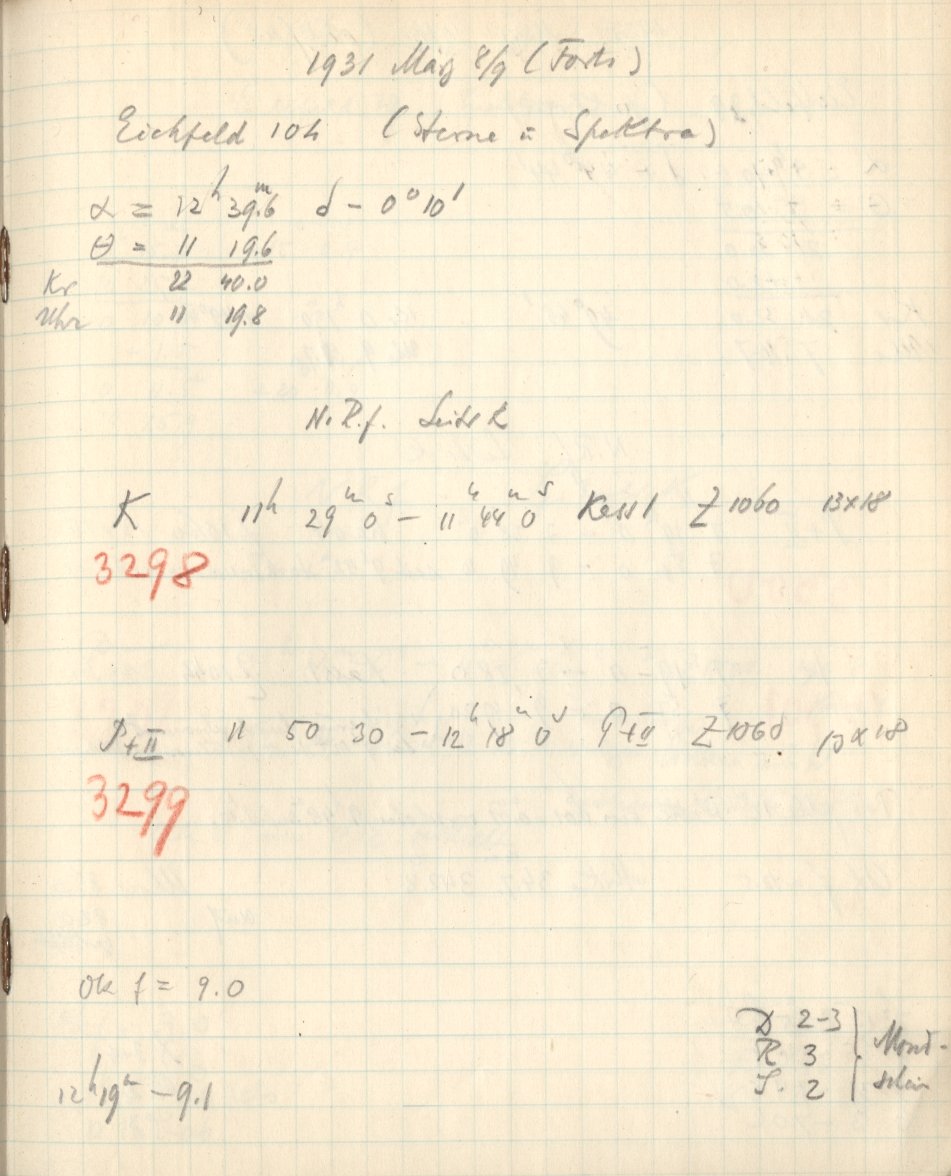 1931 März 8/9 (Forts)
Eichfeld 104 (Sterne u Spektra)
α = 12h 39.m6 δ - 0° 10'
θ = 11 19.6
Kr 22 40.0
Uhr 11 19.8
N.R.f. Seite R
K 11h 29m 0s - 11h 44m 0s Kass I Z 1060 13x18
3298
P+II 11 50 30 - 12h 18m 0s P+II Z 1060 13x18
3299
Ok f = 9.0
D 2-3
R 3
S. 2
Mond-
schein
12h 19m - 9.1